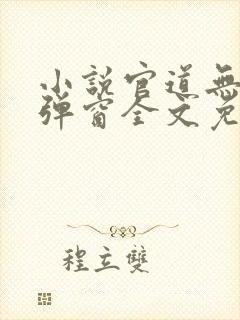 小說官道無
彈窗全文免
程立雙